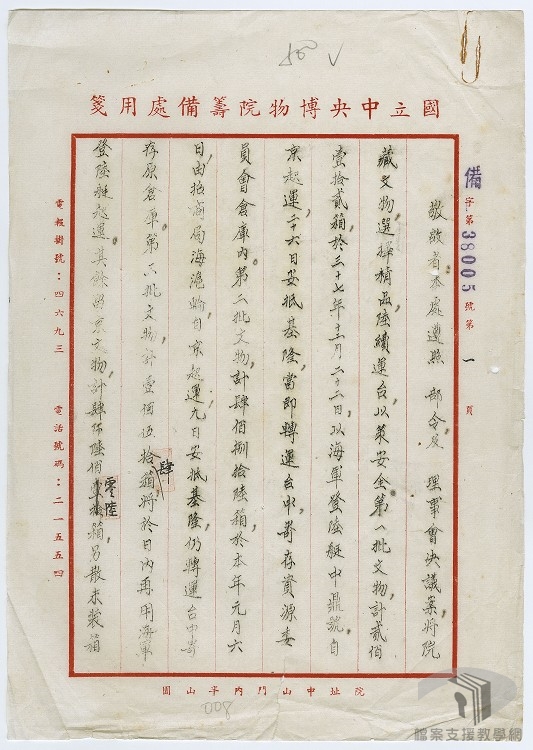 國立中央博物院籌備處用箋
備字第38005號第一頁
敬啟者本處遵照 部令及 理事會決議案將院
藏文物選擇精品陸續運台以策安全第一批文物計貳佰
壹拾貳箱於三十七年十二月二十二日以海軍登陸艇中鼎號自
京起運二十六日安抵基隆當即轉運台中寄存資源委
員會倉庫內第二批文物計肆佰捌拾陸箱於本年元月六
日由招商局海滬輪自京起運九日安抵基隆仍轉運台中寄
存原倉庫第三批文物計壹佰伍拾肆箱將於日內再用海軍
登陸艇起運其餘留京文物計肆仟陸佰零陸箱另散未裝箱
電報掛號：四六九三
電話號碼：二一五五四
院址中山門內半山園
800
檔案支援教學網